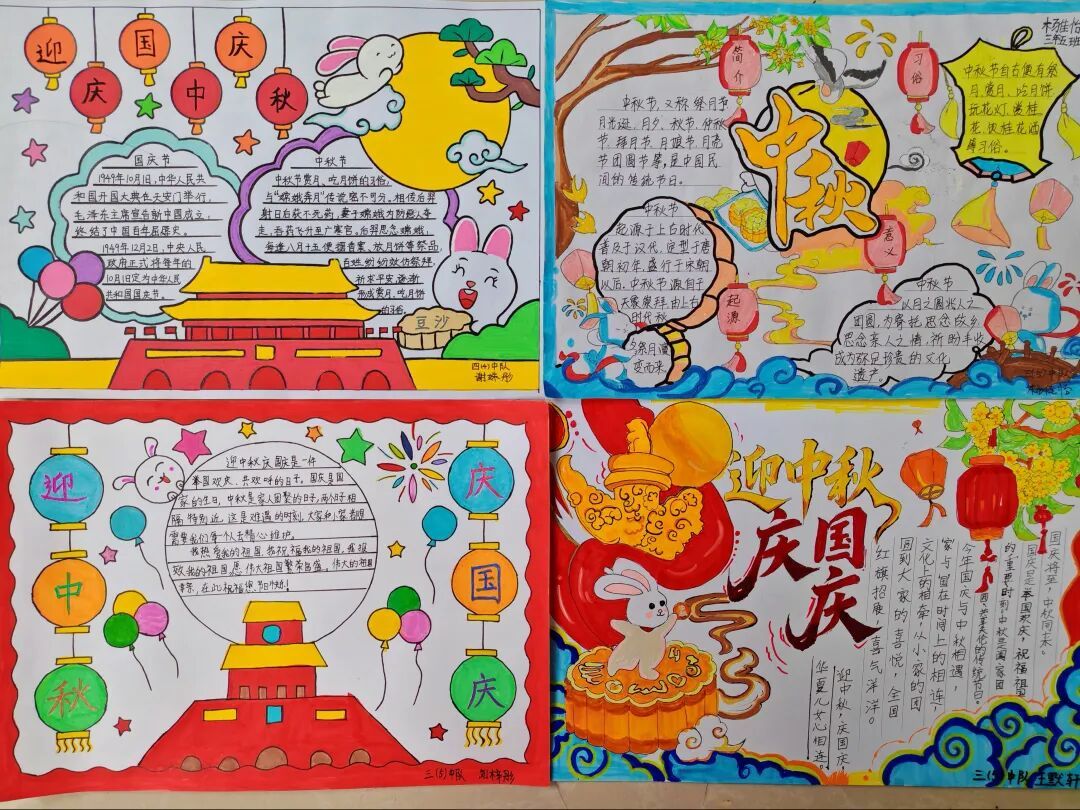 迎国庆
庆中秋
国庆节
1949年10月1日,中华人民共
和国开国大典在天安门举行,
毛泽东主席宣告新中国成立,
终结了中国百年屈辱史。
1949年12月2日,中央人民
政府正式将每年的
10月1日定为中华人民
共和国国庆节。
中秋节
中秋节赏月、吃月饼的习俗,
与“嫦娥奔月”传说密不可分。相传后羿
射日后获不死药,妻子嫦娥为防恶人夺
走,吞药飞升至广寒宫。后羿思念嫦娥,
每逢八月十五便摆香案,放月饼等祭品,
百姓纷纷效仿祭拜
祈求平安,逐渐
形成赏月、吃月饼
的习俗。
豆沙
四(4)中队
杨佳怡
三年五班
简介
习俗
中秋节,又称祭月节
月光诞、月夕、秋节、仲秋
节、拜月节、月娘节、月亮
节团圆节等,是中国民
间的传统节日。
中秋
中秋节自古便有祭
月、赏月、吃月饼
玩花灯、赏桂
花、饮桂花酒
等习俗。
中秋节
起源于上古时代
普及于汉代,定型于唐
朝初年,盛行于宋朝
以后,中秋节源自于
天象崇拜,由上古
时代秋
夕祭月演
变而来
起源
意义
中秋节
以月之圆兆人之
团圆,为寄托思念故乡,
思念亲人之情,祈盼丰收
成为弥足珍贵的文化
遗产。
迎中秋
庆国庆
迎中秋庆国庆是一件
举国欢庆、共欢呼的日子。国庆是国
家的生日,中秋是家人团聚的日子,两个日子相
隔特别近。这是难遇的时刻,大家和小家都
需要我们每个人去精心维护。
我热爱我的祖国,我祝福我的祖国,我
我的祖国,愿伟大祖国繁荣昌盛。伟大的祖国
母亲,在此祝福您节日快乐!
三(5)中队
迎中秋
庆国庆
国庆将至,中秋同来。
国庆是举国欢庆,祝福祖国
的重要时刻,中秋是阖家团
圆、共享天伦的传统节日。
今年国庆与中秋相遇,
家与国在时间上的相连,
文化上的相牵,从小家的团
圆到大家的喜悦,全国
红旗招展,喜气洋洋。
迎中秋,庆国庆,
华夏儿女心相连。
三(5)中队 王默轩